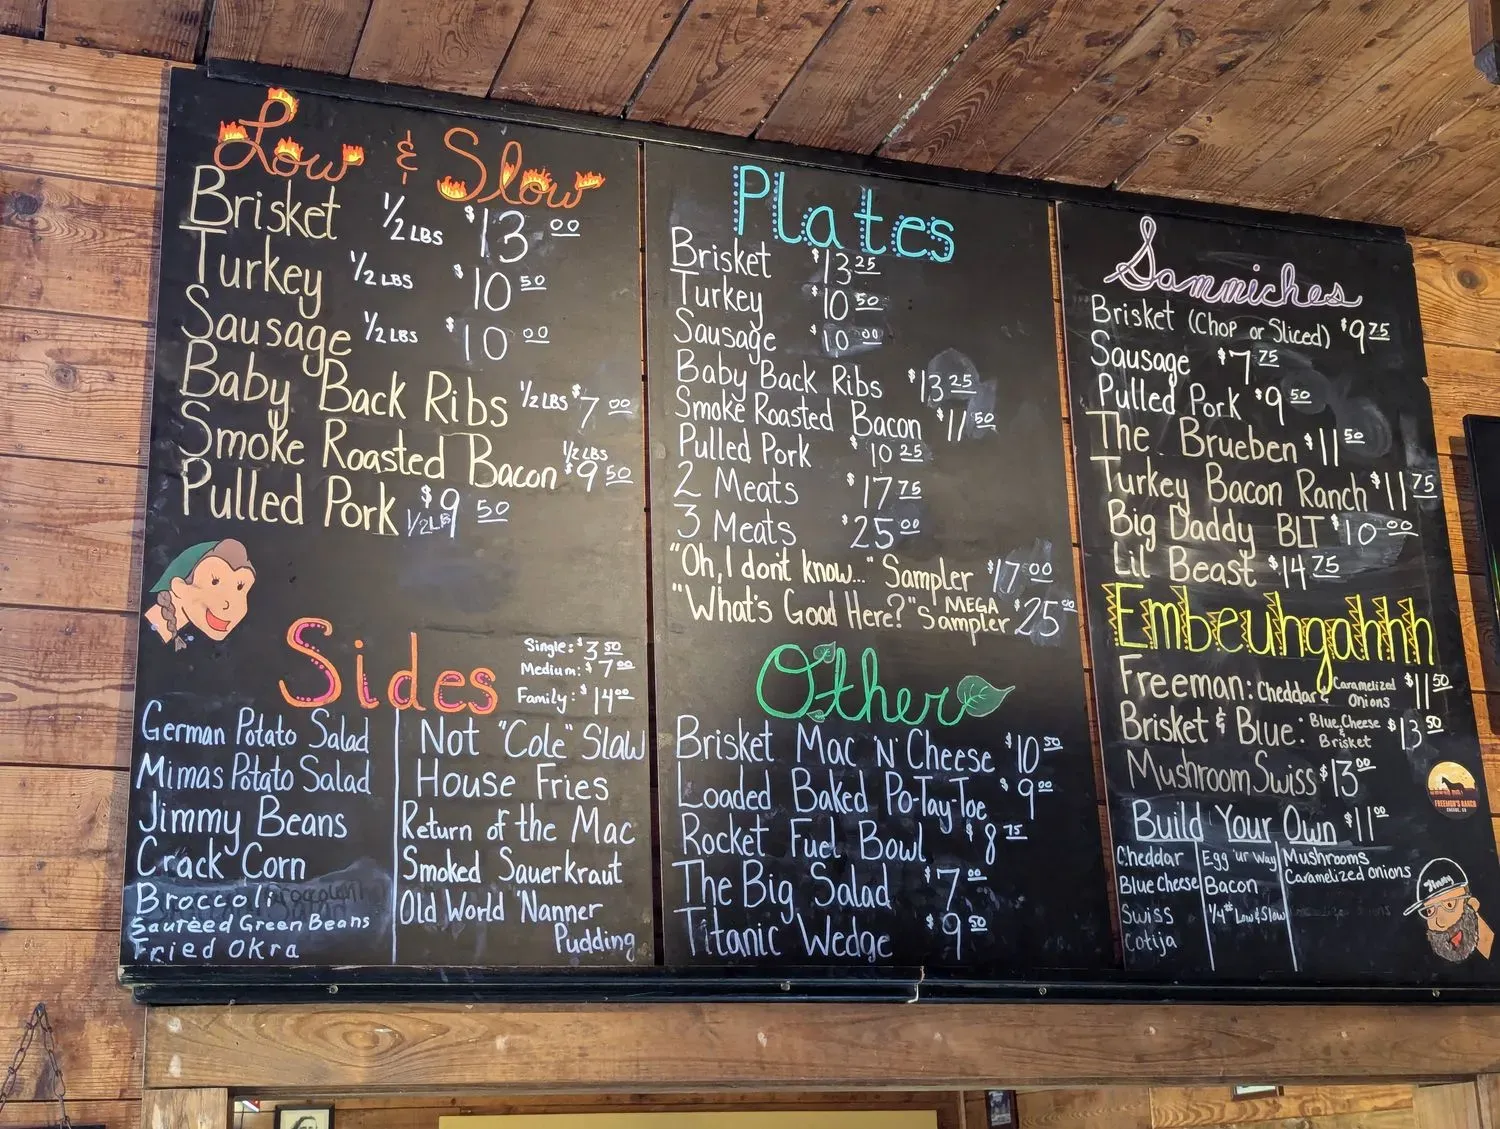 Low & Slow
Brisket 1/2 LBS $13 00
Turkey 1/2 LBS $10 50
Sausage 1/2 LBS $10 00
Baby Back Ribs 1/2 LBS $7 00
Smoke Roasted Bacon 1/2 LBS $9 50
Pulled Pork 1/2 LB $9 50
Sides
Single: $3 50
Medium: $7 00
Family: $14 00
German Potato Salad
Mimas Potato Salad
Jimmy Beans
Crack Corn
Broccoli
Sauteed Green Beans
Fried OKra
Not "Cole" Slaw
House Fries
Return of the Mac
Smoked Sauerkraut
Old World 'Nanner
Pudding
Plates
Brisket $13 25
Turkey $10 50
Sausage $10 00
Baby Back Ribs $13 25
Smoke Roasted Bacon $11 50
Pulled Pork $10 25
2 Meats $17 75
3 Meats $25 00
"Oh, I dont know..." Sampler $17 00
"What's Good Here?" MEGA Sampler $25
Other
Brisket Mac 'N' Cheese $10 50
Loaded Baked Po-Tay-Toe $9 00
Rocket Fuel Bowl $8 75
The Big Salad $7 00
Titanic Wedge $9 50
Sammiches
Brisket (Chop or Sliced) $9 75
Sausage $7 75
Pulled Pork $9 50
The Brueben $11 50
Turkey Bacon Ranch $11 75
Big Daddy BLT $10 00
Lil Beast $14 75
Embeuhgahhh
Freeman: Cheddar & Caramelized Onions $11 50
Brisket & Blue: Blue Cheese & Brisket $13 50
Mushroom Swiss $13 00
Build Your Own $11 00
Cheddar
Blue Cheese
Swiss
Cotija
Egg 'ur Way
Bacon
1/4# Low & Slow
Mushrooms
Caramelized Onions
FREEMAN'S RANCH